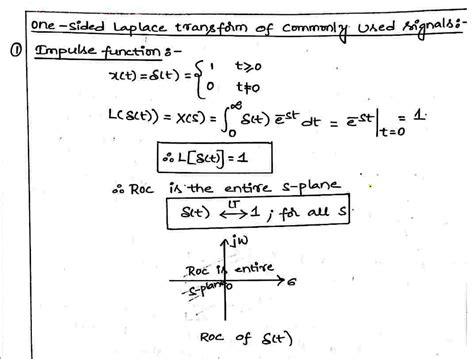 One-sided Laplace transform of commonly used signals:-
① Impulse function:-
x(t) = δ(t) = { 1 t≥0
0 t≠0
L(δ(t)) = X(s) = ∫₀^∞ δ(t) e^-st dt = e^-st |t=0 = 1.
∴ L[δ(t)] = 1
∴ Roc is the entire s-plane
δ(t) ←LT→ 1 ; for all s
jω
Roc is entire
s-plane 0 σ
Roc of δ(t)